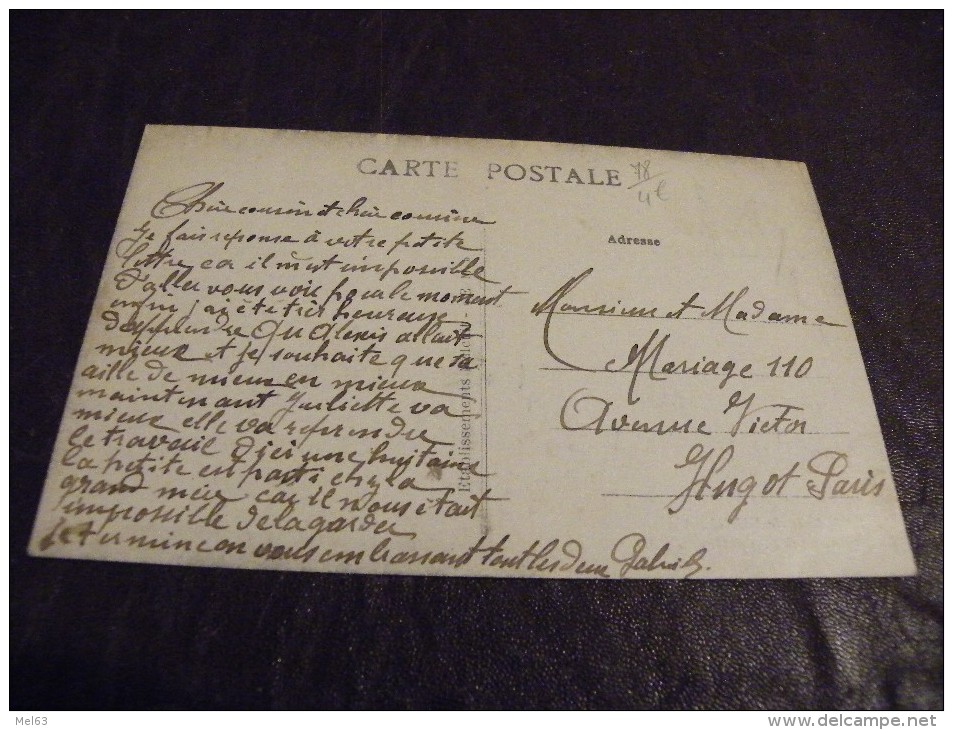 CARTE POSTALE
78
4e
Chère cousin et chère cousine
Je fais reponse à votre petite
lettre car il m'est impossible
d'aller vous voir pour le moment
enfin j'ai été très heureuse
d'apprendre Qu Alexis allait
mieux et je souhaite que sa
aille de mieux en mieux
maintenant Juliette va
mieux elle va reprendre
le travail d'ici une huitaine
la petite est parti chez la
grand mère car il nous était
impossible de la garder
Je termine en vous embrassant tout les deux
Etablissements
Adresse
Monsieur et Madame
Mariage 110
Avenue Victor
Hugot Paris
Mel63
delcampe.net